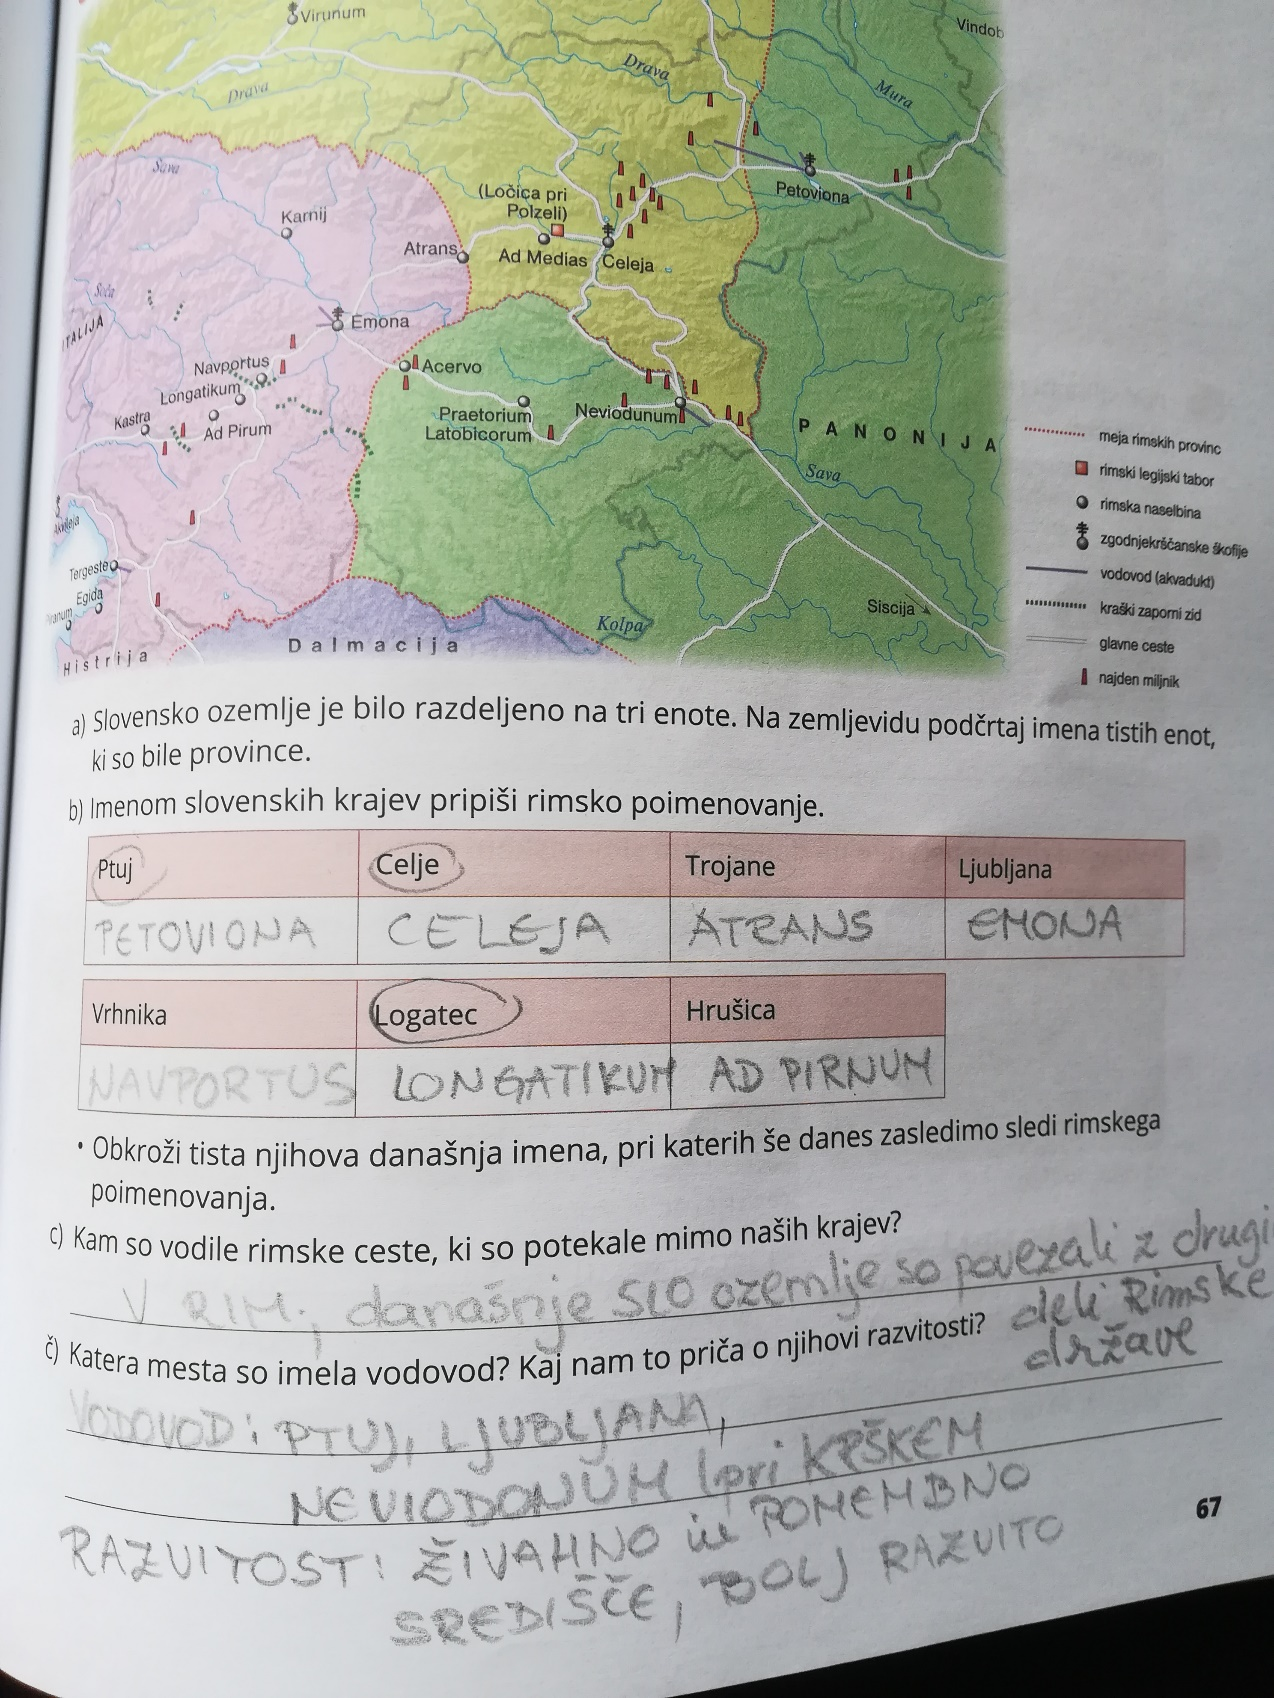 Virunum
Vindob
Drava
Drava
Mura
Sava
Petoviona
(Ločica pri
Polzeli)
Karnij
Atrans
Ad Medias
Celeja
Soča
ITALIJA
Emona
Navportus
Acervo
Longatikum
Kastra
Ad Pirum
Praetorium
Latobicorum
Neviodunum
PANONIJA
Sava
Tergeste
Egida
Siscija
Kolpa
Dalmacija
Histrija
meja rimskih provinc
rimski legijski tabor
rimska naselbina
zgodnjekrščanske škofije
vodovod (akvadukt)
kraški zaporni zid
glavne ceste
najden miljnik
a) Slovensko ozemlje je bilo razdeljeno na tri enote. Na zemljevidu podčrtaj imena tistih enot,
ki so bile province.
b) Imenom slovenskih krajev pripiši rimsko poimenovanje.
Ptuj Celje Trojane Ljubljana
PETOVIONA CELEJA ATRANS EMONA
Vrhnika Logatec Hrušica
NAVPORTUS LONGATIKUM AD PIRNUM
• Obkroži tista njihova današnja imena, pri katerih še danes zasledimo sledi rimskega
poimenovanja.
c) Kam so vodile rimske ceste, ki so potekale mimo naših krajev?
V RIM; današnje SLO ozemlje so povezali z drugi
deli Rimske
države
č) Katera mesta so imela vodovod? Kaj nam to priča o njihovi razvitosti?
VODOVOD: PTUJ, LJUBLJANA,
NEVIODONUM (pri KRŠKEM
RAZVITOST: ŽIVAHNO in POMEMBNO
SREDIŠČE, BOLJ RAZVITO
67